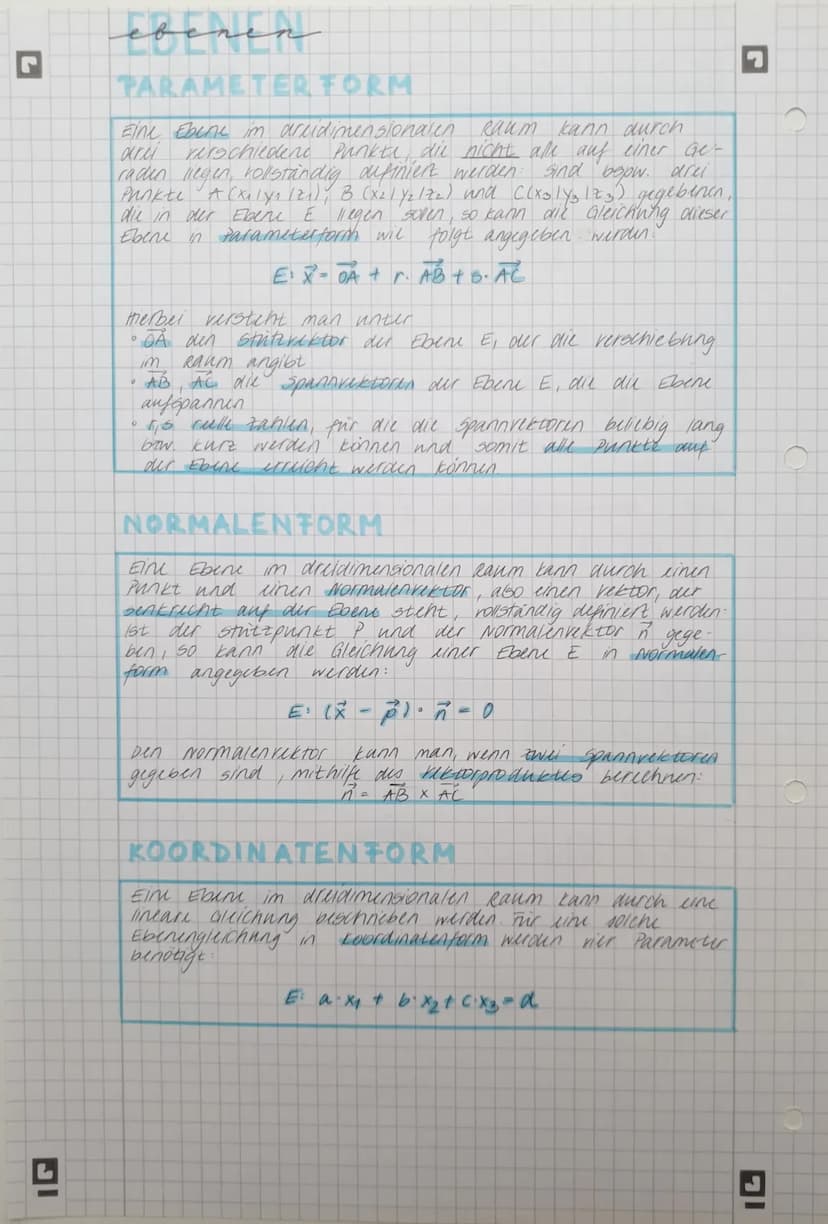 EBENEN
ebenen
PARAMETERFORM
Eine Ebene im dreidimensionalen Raum kann durch
drei verschiedene Punkte, die nicht alle auf einer Ge-
raden liegen, vollständig definiert werden. Sind bspw. drei
Punkte A(x₁|y₁|z₁), B(x₂|y₂|z₂) und C(x₃|y₃|z₃) gegebenen,
die in der Ebene E liegen sollen, so kann die Gleichung dieser
Ebene in Parameterform wie folgt angegeben werden:
E: x⃗ = OA⃗ + r · AB⃗ + s · AC⃗
Hierbei versteht man unter
• OA⃗ den Stützvektor der Ebene E, der die Verschiebung
im Raum angibt
• AB⃗, AC⃗ die Spannvektoren der Ebene E, die die Ebene
aufspannen
• r,s reelle Zahlen, für die die Spannvektoren beliebig lang
bzw. kurz werden können und somit alle Punkte auf
der Ebene erreicht werden können
NORMALENFORM
Eine Ebene im dreidimensionalen Raum kann durch einen
Punkt und einen Normalenvektor, also einen Vektor, der
senkrecht auf der Ebene steht, vollständig definiert werden.
Ist der Stützpunkt P und der Normalenvektor n⃗ gege-
ben, so kann die Gleichung einer Ebene E in Normalen-
form angegeben werden:
E: (x⃗ - p⃗) · n⃗ = 0
Den Normalenvektor kann man, wenn zwei Spannvektoren
gegeben sind, mithilfe des Vektorproduktes berechnen:
n⃗ = AB⃗ × AC⃗
KOORDINATENFORM
Eine Ebene im dreidimensionalen Raum kann durch eine
lineare Gleichung beschrieben werden. Für eine solche
Ebenengleichung in Koordinatenform werden vier Parameter
benötigt:
E: a·x₁ + b·x₂ + c·x₃ = d